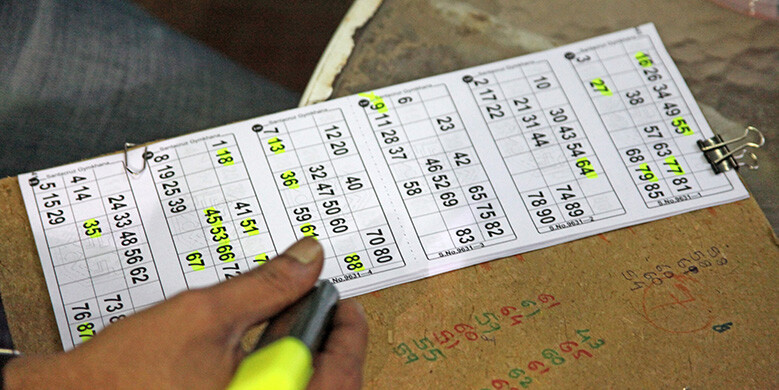 Santacruz Gymkhana
5 4
15 14
29 24
35 33
48
56
62
76 73
87
Santacruz Gymkhana
8 1
19 18
25
39
45 41
53 51
67 66
72
Santacruz Gymkhana
7
13 12
20
36 32
47 40
59 50
61 60
70
88 80
S.No.9631-4
Santacruz Gymkhana
9 6
11
28 23
37
46 42
58 52
69 65
75
83 82
S.No.9631-3
Santacruz Gymkhana
2
17 10
22 21
31 30
44 43
54
64
78 74
90 89
S.No.9631-2
Santacruz Gymkhana
3
16
27 26
38 34
49
57 55
68 63
79 77
85 81
S.No.9631-1